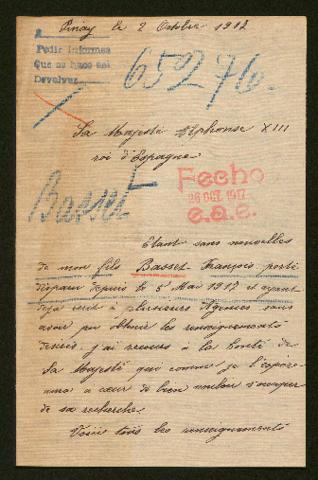 Pinay le 2 Octobre 1917
Pedir informes
Que se hace así
Devolver
65276.
Sa Majesté Alphonse XIII
roi d'Espagne
Fecho
26 OCT. 1917
e.a.e.
Basset
Etant sans nouvelles
de mon fils Basset François porté
disparu depuis le 5 Mai 1917 et ayant
déjà écrit à plusieurs Agences sans
avoir pu obtenir les renseignements
désirés, j'ai recours à la bonté de
Sa Majesté qui comme je l'espère
aura à cœur de bien vouloir s'occuper
de sa recherche.
Voici tous les renseignements